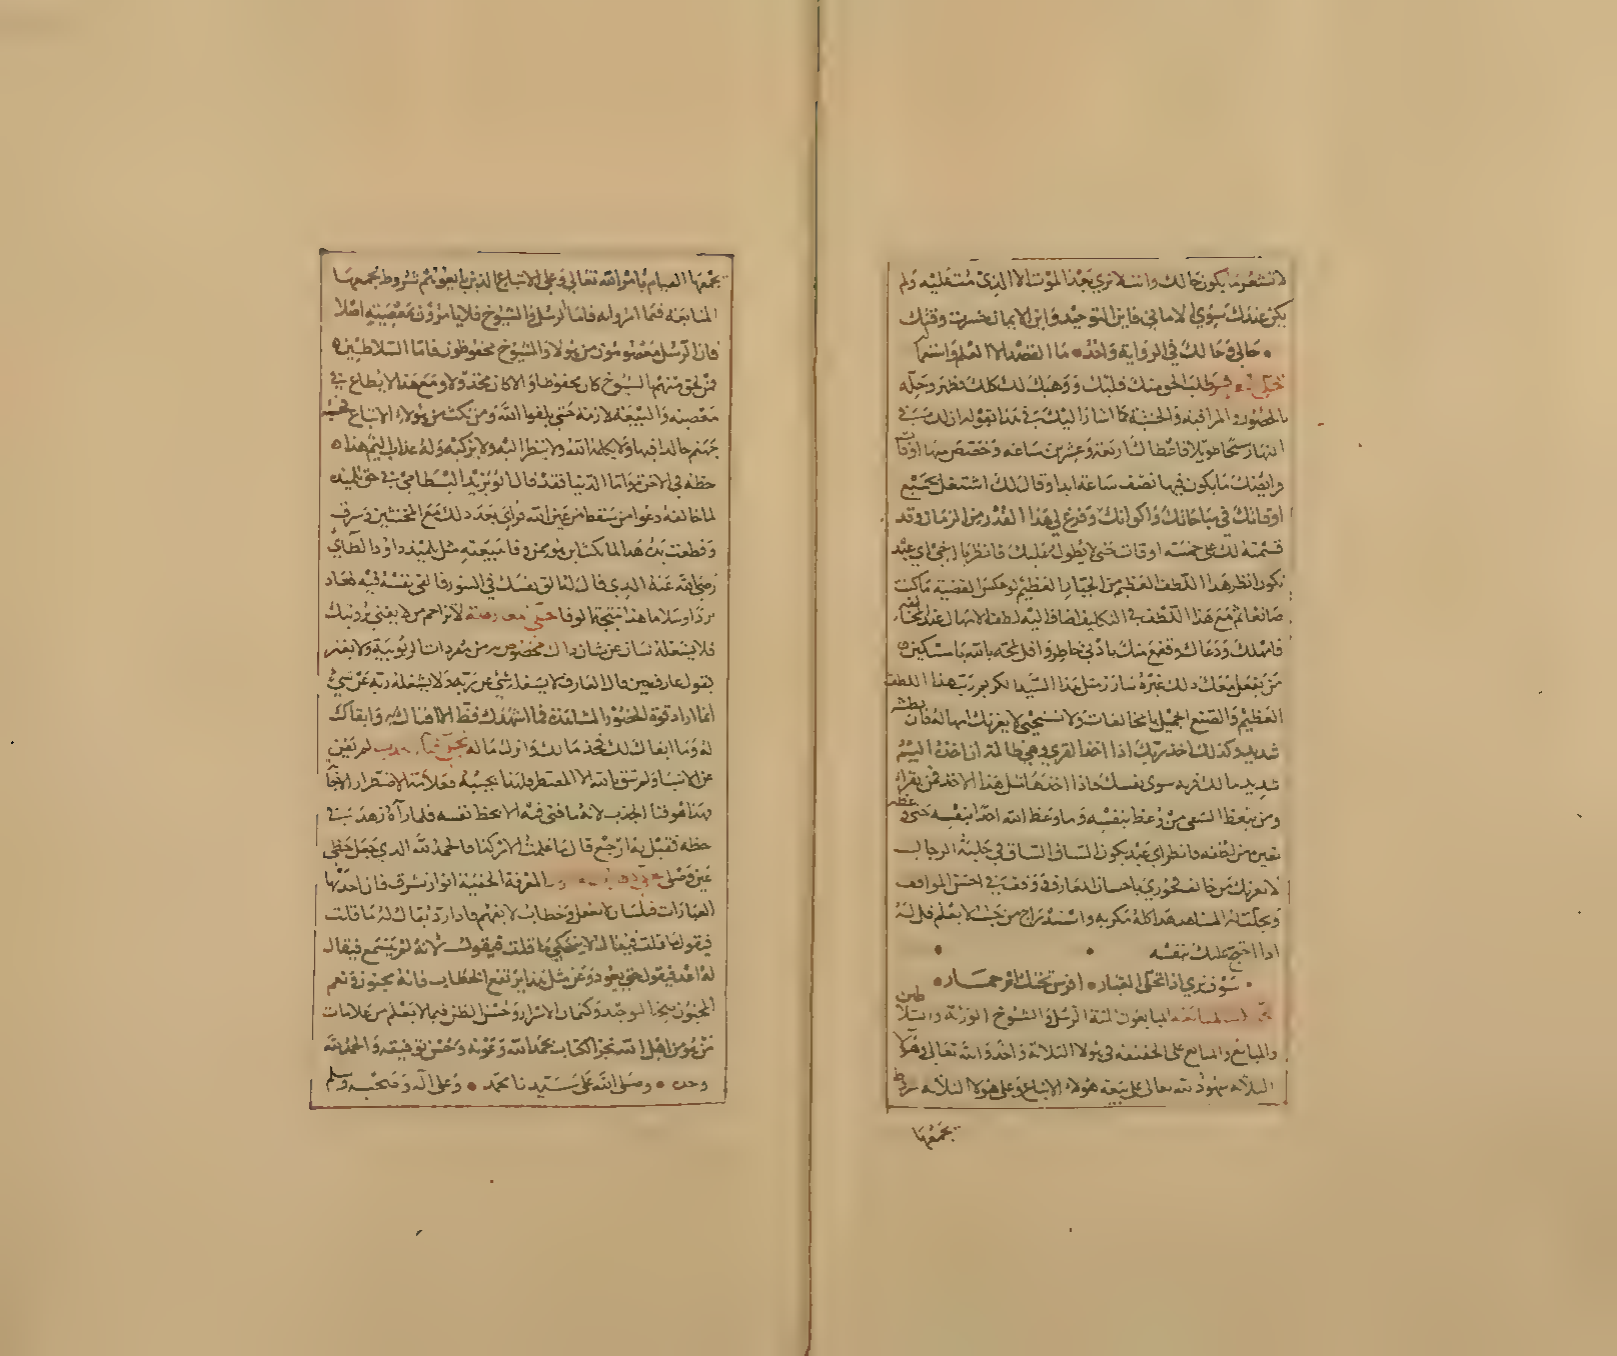 لا تشعر ما يكون حالك وانت لا تري بعد الموت الا الذي مت عليه ولم
يكن عندك سوي الاماني فاين التوحيد واين الايمان خسرت وقتك
حالي وحالك في الرواية واحد ما القصد الا العلم واستعما
طلب الحق منك قلبك ووهبك لك كلك فطهره وحله
بالحضور والمراقبة والخشية كما اشار اليك في هذا بقوله ان لك في
النهار سبحا طويلا فاعطاك اربعة وعشرين ساعة وخصص منها اوقا
ما يكون فيها نصف ساعة ابدا وقال لك اشتغل بجميع
اوقاتك في مباحاتك واكوانك وفرغ لي هذا القدر من الزمان وقد
قسمته لك على خمسة اوقات حتى لا يطول عليك فانظر يا اخي اي عبد
تكون انظر هذا اللطف العظيم من الجبار العظيم لو عكس القضية ما كنت
صانعا ثم مع هذا اللطف في التكليف اضاف اليه لطف الامهال عند المخالفة
فامهلك ودعاك وقنع منك بادنى خاطر واقل لمحة بالله يا مسكين
من يفعل معك ذلك غيره سار من مثل هذا السيد الكريم رب هذا اللطف
العظيم والصنع الجميل بالمخالفات ولا تستحي لا يغرنك امهاله فان بطشه
شديد وكذلك اخذ ربك اذا اخذ القرى وهي ظالمة ان اخذه اليم
شديد ما لك قرية سوى نفسك فاذا اخذها مثل هذا الاخذ فمن يقراء
ومن يتعظ السعي من وعظ بنفسه وما وعظ الله احدا بنفسه حتى
وانظر اي عبد يكون الساق الساق في حلبة الرجال
لا يغرنك من خالف فجوزي باحسان المعارف ووقف في احسن المواقف
المشاهد هذا كله مكر به واستدراج من حيث لا يعلم قل له
اذا احتج عليك بنفسه
سوف ترى اذا انجلى الغبار افرس تحتك ام حمار
المبايعون ثلثة الرسل والشيوخ الورثة والسلاطين
والمبايع والمبايع على الحقيقة في هولاء الثلاثة واحد والله تعالى وهولا
الثلاثة شهود لله تعالى على بيعة هولاء الاتباع وعلى هولاء الثلاثة شروط
يجمعها
يجمعها القيام بامر الله تعالى وعلى الاتباع الذين بايعوهم شروط يجمعها
المتابعة فيما امروا به فاما الرسل والشيوخ فلا يامرون بمعصية اصلا
فان الرسل معصومون من هولاء والشيوخ محفوظون فاما السلاطين
فمن لحق منهم بالشيوخ كان محفوظا والا كان مخذولا ومع هذا لا يطاع في
معصية والبيعة لازمة حتى يلقوا الله ومن نكث من هولاء الاتباع فحسبه
جهنم خالدا فيها ولا يكلمه الله ولا ينظر اليه ولا يزكيه وله عذاب اليم هذا
حظه في الاخرة واما الدنيا فقد قال ابو يزيد البسطامي في حق تلميذه
لما خالفه دعوا من سقط من عين الله فراي بعد ذلك مع المخنثين وسرق
وقطعت يده هذا لما نكث اين هو ممن وفا ببيعته مثل تلميذ داود الطاي
رضي الله عنه الذي قال له الق نفسك في التنور فالقى نفسه فيه فعاد
بردا وسلاما هذا نتيجة الوفا لا تزاحم من لا يفنى برويتك
فلا يشغله شان عن شان ذلك مخصوص به من مفردات الربوبية ولا يغتر
بقول عارف حين قال العارف لا يشغله شي عن ربه ولا يشغله ربه عن شي
انما اراد قوة الحضور المشاهدة فما اشهدك قط الا افناك وابقاك
له وما ابقاك لك فخذ ما لك واترك ما له لم تغن
عن الاشيا ولم يتق بالله الا المضطر ولهذا يجيبه فعلامة الاضطرار الاجا
حظه فقيل له ارجع قال ما علمت الامر كذا والحمد لله الذي جعل حظي
عين وصلي المعرفة الحقيقة انوار تشرق فان اخذتها
العبارات فبلسان لا يعقل وخطاب لا يفهم فاذا رد يقال له ما قلت
فيقول ما قلت فيقال له لا يحكي ما قلت فيقول لانه لم يسمع فيقال
له اعد فيقول حتى يعود وعن مثل هذا يرتفع الخطاب فانه مجنون ونعم
الجنون الوجد وكتمان الاسرار وحسن الظن فيما لا يعلم من علامات
من هو من اهل الله نجز الكتاب بحمد الله وعونه وحسن توفيقه والحمد لله
وحده وصلى الله على سيدنا محمد وعلى اله وصحبه وسلم